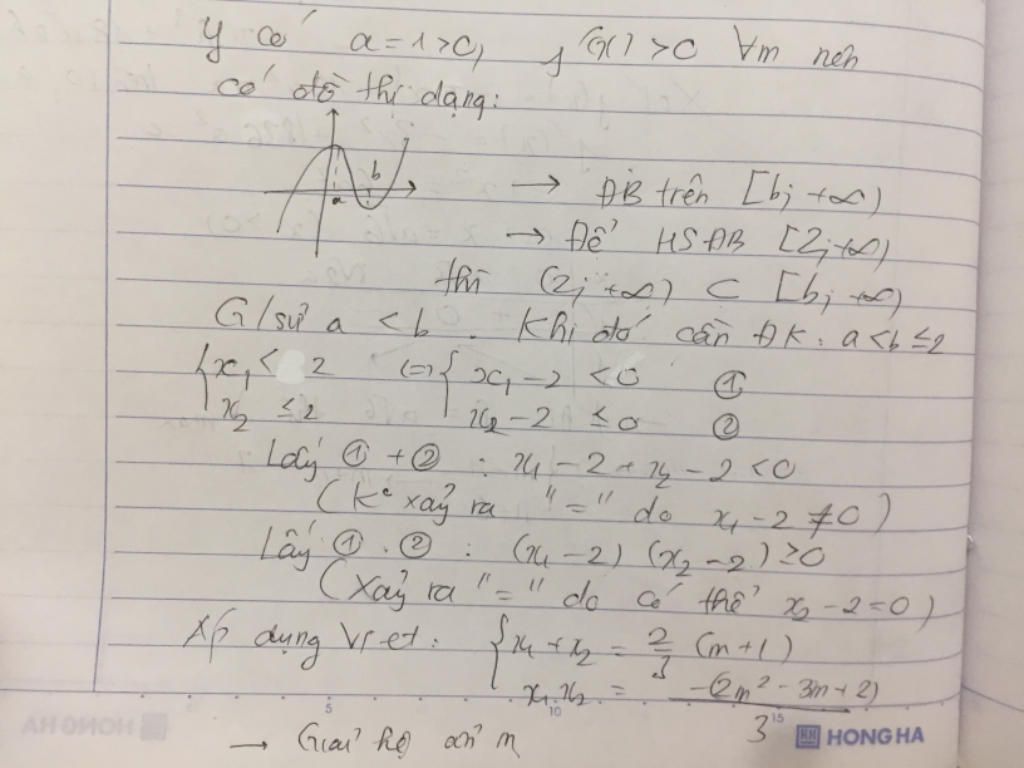 y có a = 1 > 0, >0 ∀m nên
có đồ thị dạng:
a b
→ ĐB trên [b; +∞)
→ Để HSĐB [2; +∞)
thì (2; +∞) ⊂ [b; +∞)
G/sử a < b. Khi đó cần ĐK: a<b≤2
{ x₁ < 2 (=) { x₁ - 2 < 0 ①
x₂ ≤ 2 x₂ - 2 ≤ 0 ②
Lấy ① + ② : x₁ - 2 + x₂ - 2 < 0
(K° xảy ra "=" do x₁ - 2 ≠ 0)
Lấy ① . ② : (x₁ - 2) (x₂ - 2) ≥ 0
(Xảy ra "=" do có thể x₂ - 2 = 0)
Áp dụng Viet: { x₁ + x₂ = 2/3 (m+1)
x₁x₂ = -(2m² - 3m + 2)/3
5 10 15
→ Giải hệ ẩn m
HONG HA
HONG HA